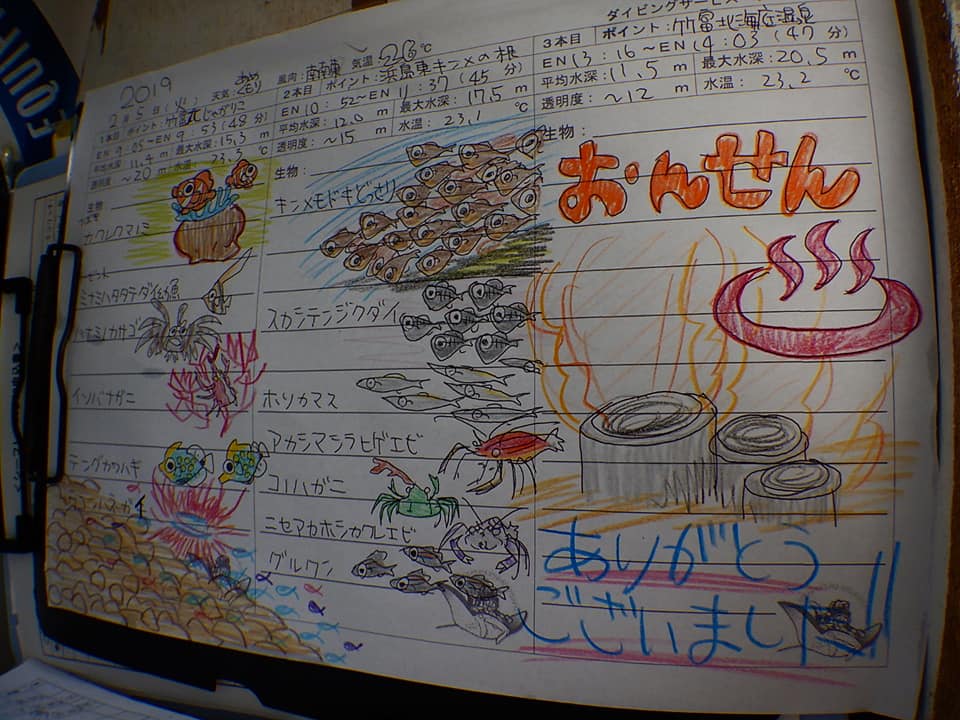 ダイビングサービス
2019
2月5日(火) 天気: あめ くもり
風向: 南東 気温 26℃
1本目 ポイント: 竹富北じゃがりこ
EN 9:05～EN 9:53(48分)
平均水深: 11.4 m 最大水深: 15.3 m
透明度 ～20 m 水温: 23.3 ℃
生物
カクレクマノミ
ミナミハタタテダイ幼魚
イソバナガニ
テングカワハギ
2本目 ポイント: 浜島東キンメの根
EN 10:52～EN 11:37(45分)
平均水深: 12.0 m 最大水深: 17.5 m
透明度: ～15 m 水温: 23.1 ℃
生物:
キンメモドキどっさり
スカシテンジクダイ
ホソカマス
アカシマシラヒゲエビ
コノハガニ
ニセアカホシカクレエビ
グルクン
3本目 ポイント: 竹富北海底温泉
EN 13:16～EN 14:03(47分)
平均水深: 11.5 m 最大水深: 20.5 m
透明度: ～12 m 水温: 23.2 ℃
生物:
おんせん
ありがとう
ございました!!